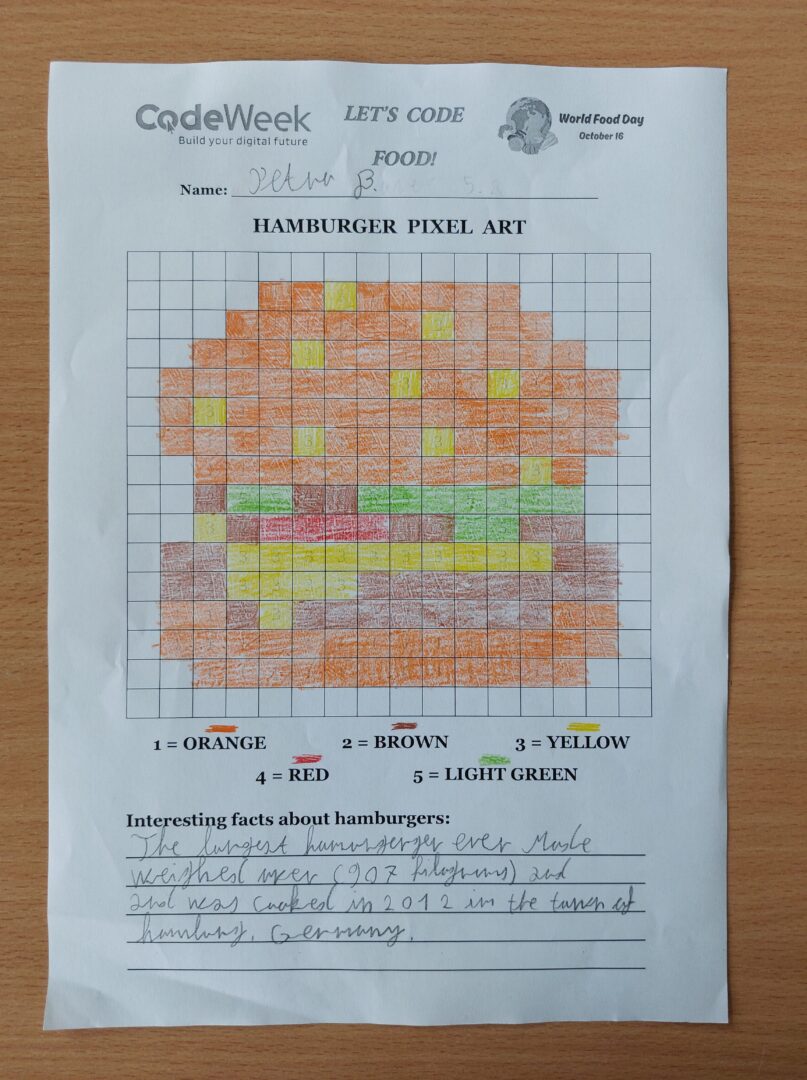 CodeWeek
Build your digital future
LET'S CODE
FOOD!
World Food Day
October 16
Name: Petra B.
HAMBURGER PIXEL ART
1 = ORANGE 2 = BROWN 3 = YELLOW
4 = RED 5 = LIGHT GREEN
Interesting facts about hamburgers:
The largest ever Made
weighed over (907 kilograms) and
and was cooked in 2012 in the town of
hamburg, Germany.